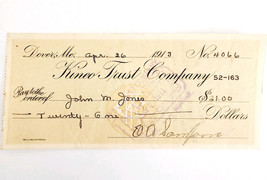 Dover, Me. Apr. 26 1913 No. 4066
Kineo Trust Company 52-163
Pay to the order of John M. Jones $21.00
Twenty-One Dollars